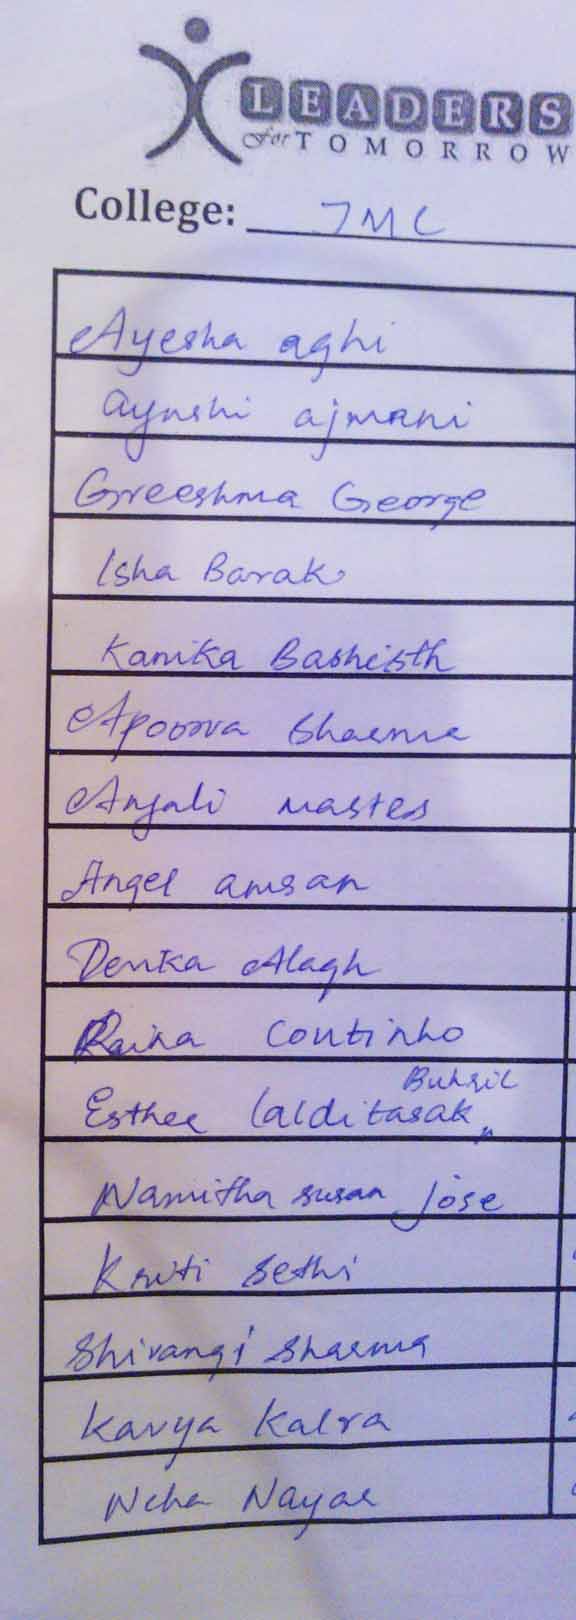 LEADERS
for TOMORROW
College: JMC
Ayesha aghi
ayushi ajmani
Greeshma George
Isha Barak
Kanika Bashisth
Apoorva Sharma
Anjali Masters
Angel amsan
Denika Alagh
Raina Coutinho
Buhril
Esther lalditasak
Namitha susan jose
Kriti Sethi
Shivangi Sharma
Kavya Kalra
Neha Nayar